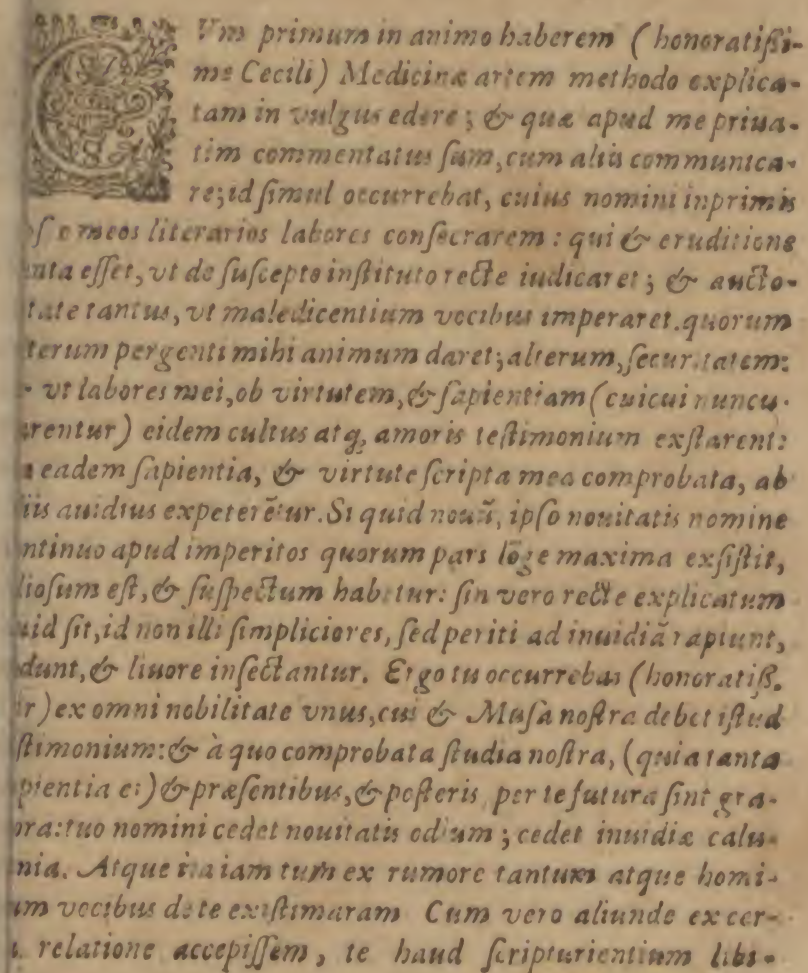 CVm primum in animo haberem (honoratißi-
me Cecili) Medicinæ artem methodo explica-
tam in vulgus edere; & quæ apud me priua-
tim commentatus ſum, cum aliis communica-
re; id ſimul occurrebat, cuius nomini inprimis
meos literarios labores conſecrarem: qui & eruditione
eſſet, vt de ſuſcepto inſtituto recte iudicaret; & aucto-
tate tantus, vt maledicentium vocibus imperaret. quorum
terum pergenti mihi animum daret; alterum, ſecuritatem:
vt labores mei, ob virtutem, & ſapientiam (cuicui nuncu-
rentur) eidem cultus atq; amoris teſtimonium exſtarent:
eadem ſapientia, & virtute ſcripta mea comprobata, ab
iis auidius expeterētur. Si quid nouū, ipſo nouitatis nomine
ntinuo apud imperitos quorum pars lōge maxima exſiſtit,
dioſum eſt, & ſuſpectum habetur: ſin vero recte explicatum
uid ſit, id non illi ſimpliciores, ſed periti ad inuidiā rapiunt,
dunt, & liuore inſectantur. Ergo tu occurrebas (honoratiß.
ir) ex omni nobilitate vnus, cui & Muſa noſtra debet iſtud
ſtimonium: & à quo comprobata ſtudia noſtra, (quia tanta
pientia es) & præſentibus, & poſteris per te futura ſint gra-
ora: tuo nomini cedet nouitatis odium; cedet inuidiæ calu-
nia. Atque ita iam tum ex rumore tantum atque homi-
um vocibus de te exiſtimaram Cum vero aliunde ex cer-
relatione accepiſſem, te haud ſcripturientium libi-